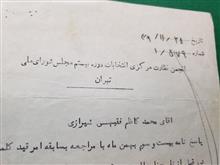 تاریخ ۳۹/۱۱/۲۸
شماره
انجمن نظارت مرکزی انتخابات دوره بیستم مجلس شورای ملی
تهران
آقای محمد کاظم فقیهی شهرازی
پاسخ نامه بیست و سوم بهمن ماه با مراجعه بسابقه امر قید کلمه